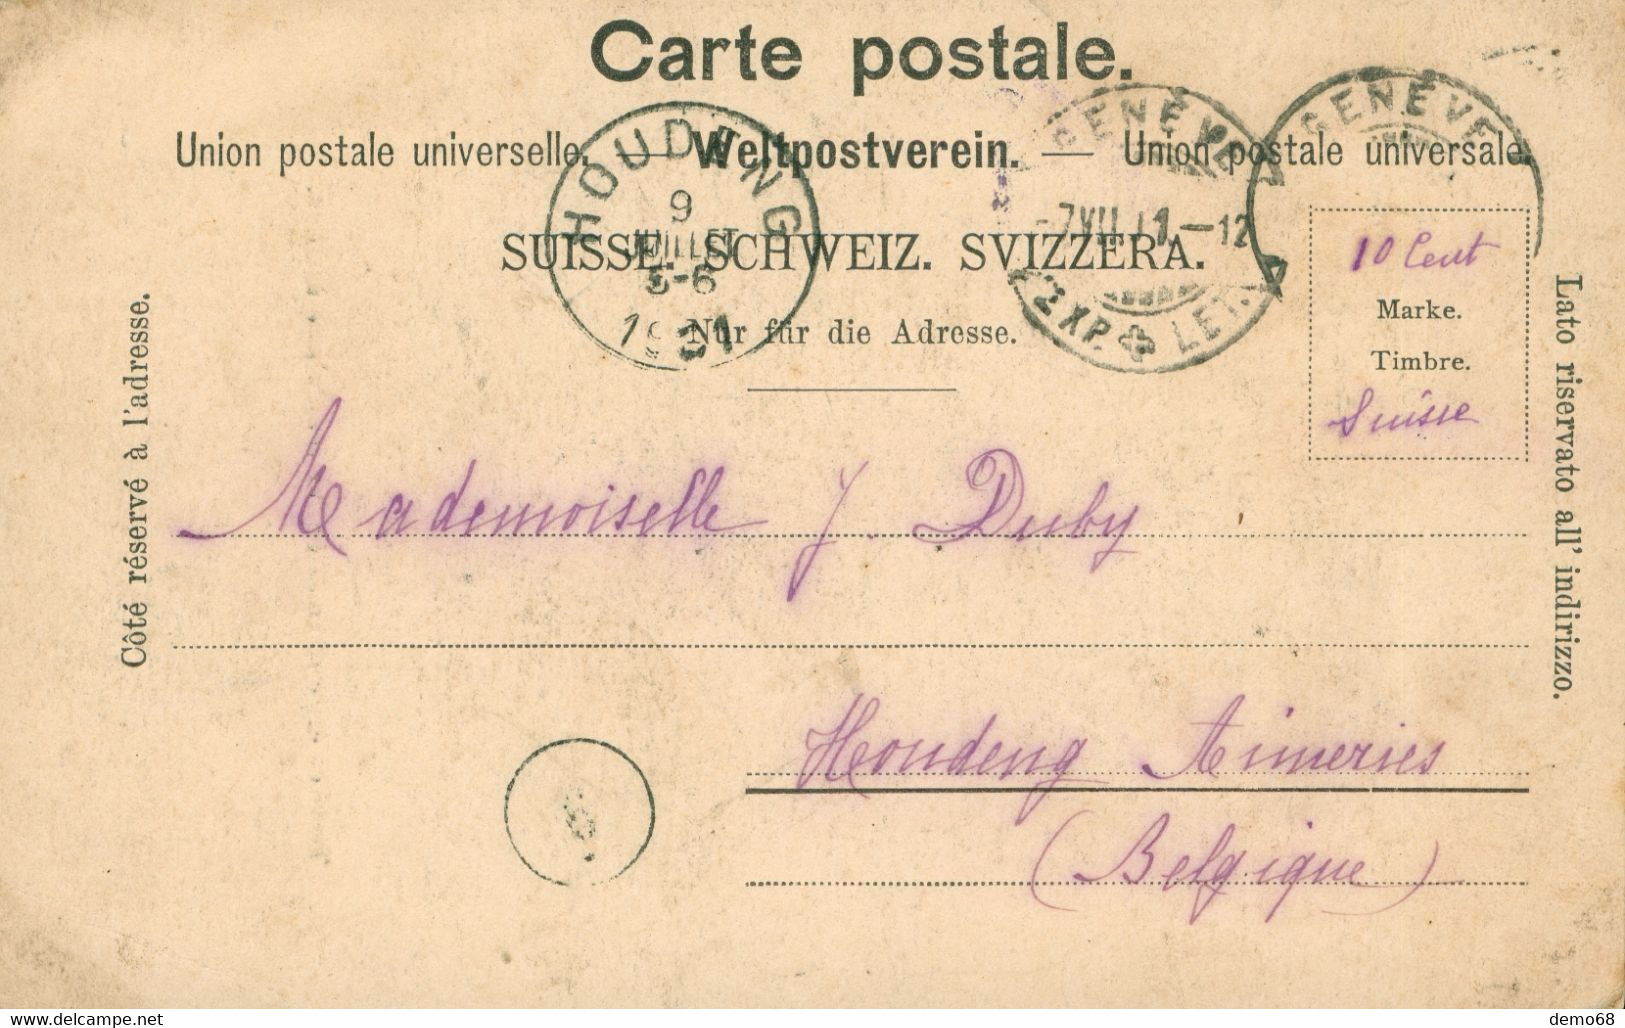 Carte postale.
Union postale universelle. — Weltpostverein. — Union postale universale.
SUISSE. SCHWEIZ. SVIZZERA.
Nur für die Adresse.
HOUDENG
9
JUILLET
5-6
GENÈVE
-12
EXP. LET.
GENÈVE
10 Cent
Marke.
Timbre.
Suisse
Côté réservé à l'adresse.
Lato riservato all' indirizzo.
Mademoiselle J. Duby
Houdeng Aimeries
(Belgique)
delcampe.net
demo68